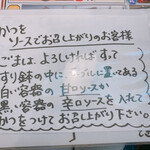 かつを
ソースでお召し上がりのお客様
ごまは、よろしければすって
すり鉢の中に ブルに置いてある
白い容器の 甘口ソースか
黒い容器の 辛口ソースを入れて
かつをつけてお召し上がり下さい。